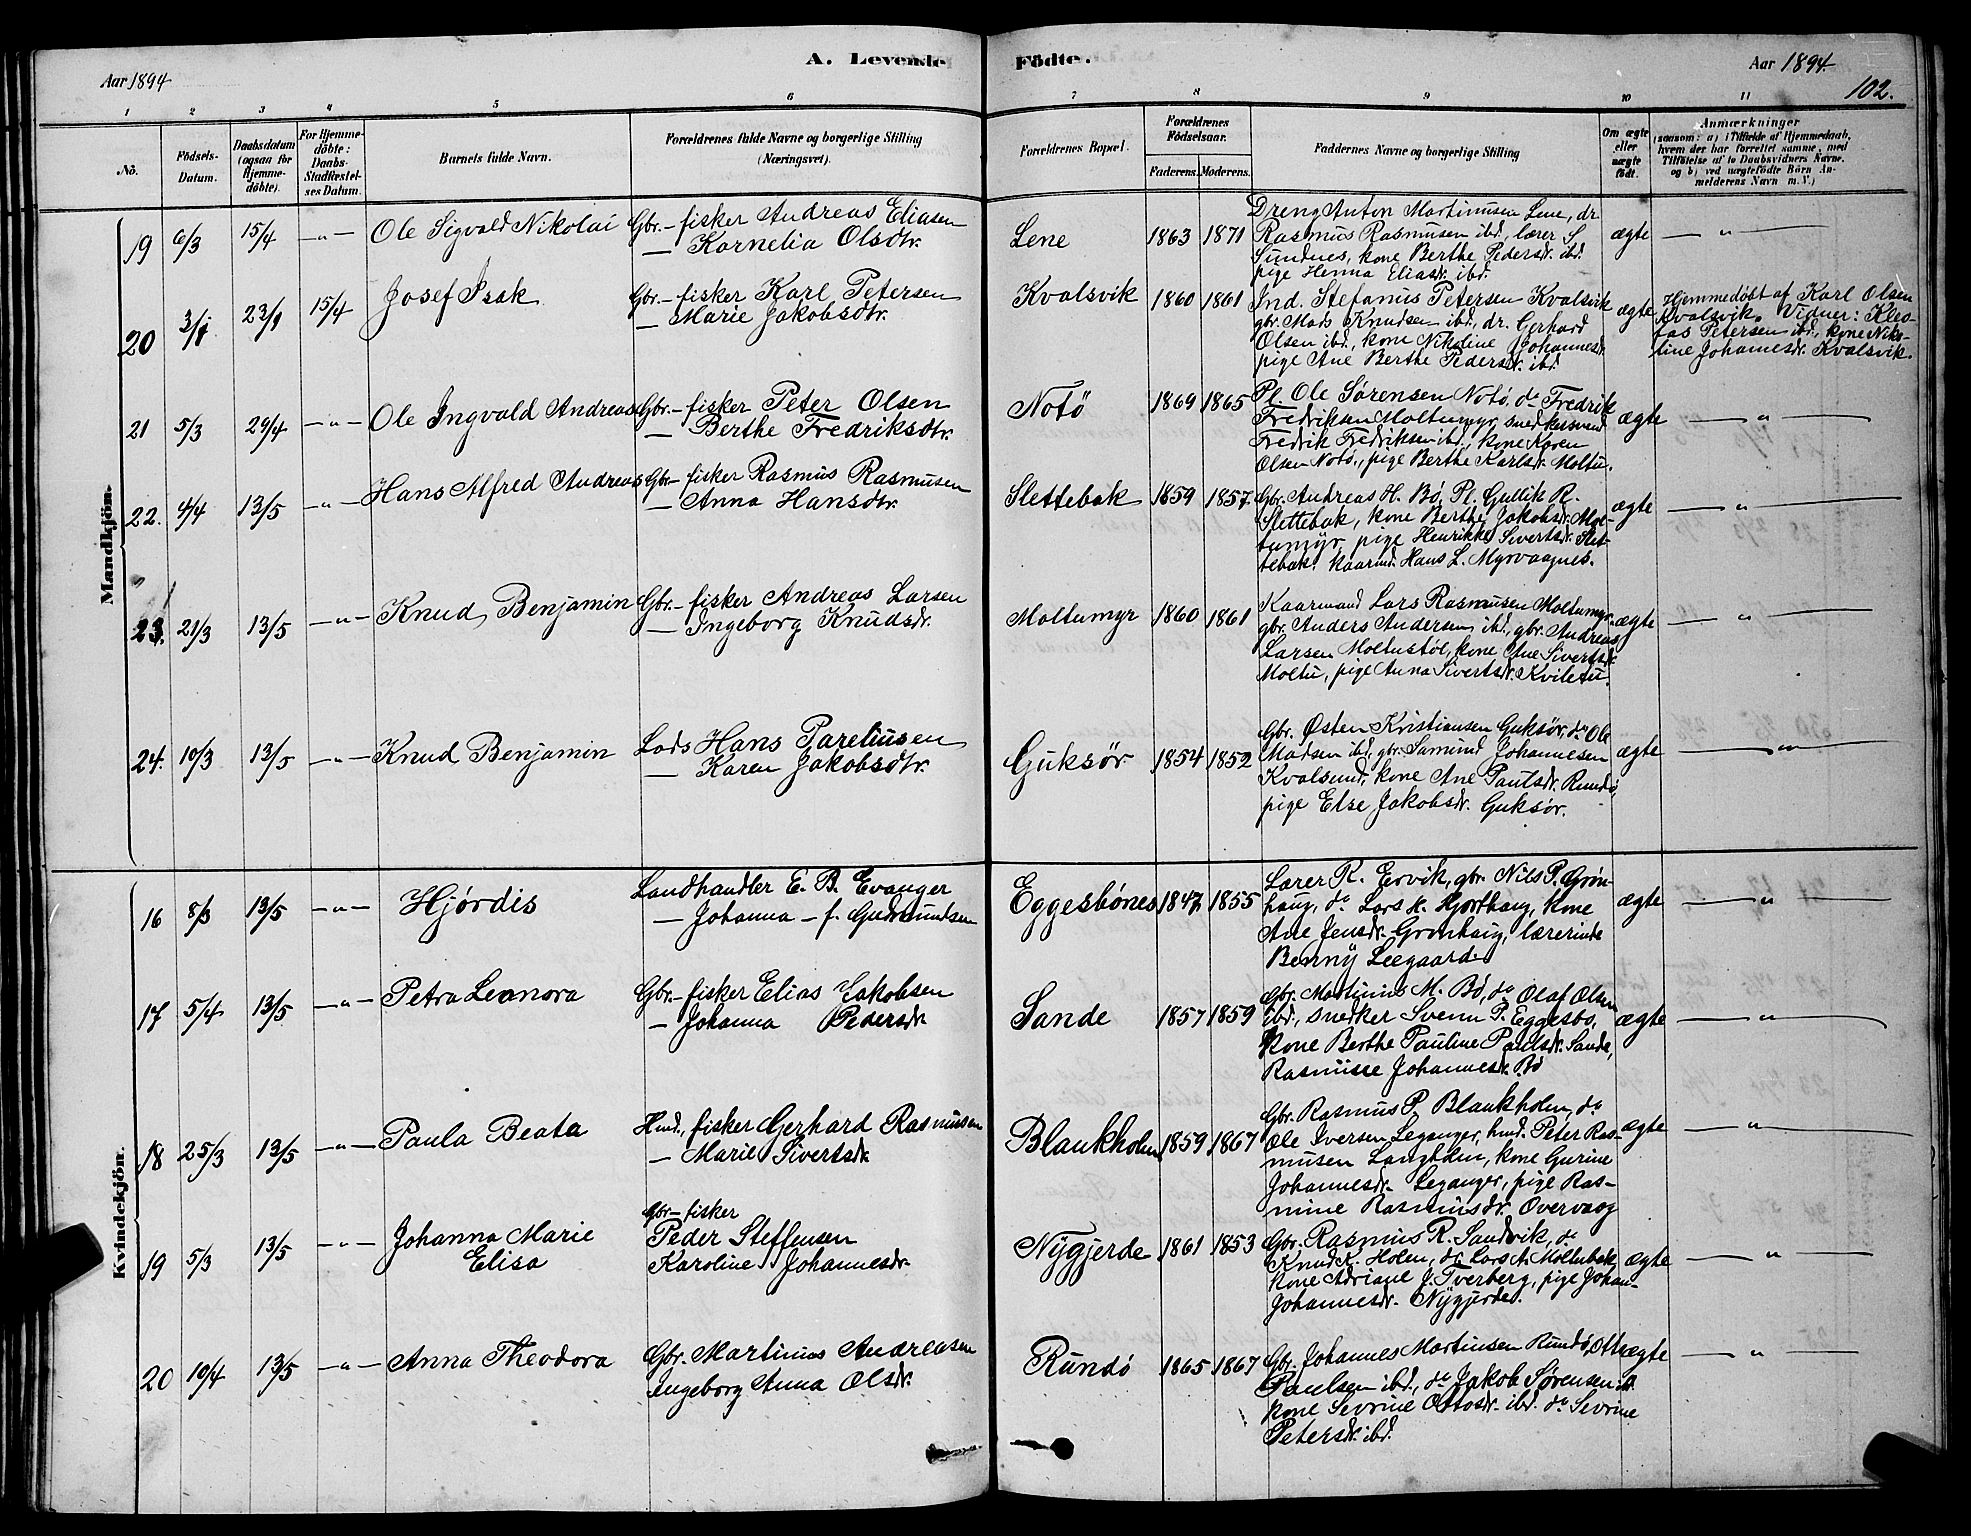 Aar 1894
A. Levende Fødte.
Aar 1894.
102.
1 2 3 4 5 6 7 8 9 10 11
No.
Fødsels-Datum.
Daabsdatum (ogsaa for Hjemme-døbte).
For Hjemme-døbte: Daabs-Stadfæstel-ses Datum.
Barnets fulde Navn.
Forældrenes fulde Navne og borgerlige Stilling (Næringsvei).
Forældrenes Bopæl.
Forældrenes Fødselsaar.
Faderens. Moderens.
Faddernes Navne og borgerlige Stilling
Om ægte eller uægte født.
Anmærkninger
(saasom: a) i Tilfælde af Hjemmedaab, hvem der har forrettet samme, med Tilføielse af to Daabsvidners Navne, og b) ved uægtefødte Børn An-melderens Navn m. V.)
Mandkjøn.
19 6/3 15/4 -„- Ole Sigvald Nikolai
Gbr.-fisker Andreas Eliasen
— Kornelia Olsdtr.
Lene 1863 1871
Dreng Anton Martinusen Lene, dr.
Rasmus Rasmusen ibd., lærer S
Sundnes, kone Berthe Pedersdr. ibd.
pige Henna Eliasdr. ibd.
ægte — „ —
20 3/1 23/1 15/4 Josef Isak
Gbr.-fisker Karl Petersen
— Marie Jakobsdtr.
Kvalsvik 1860 1861
Ind. Stefanus Petersen Kvalsvik
gbr. Mads Knudsen ibd., dr. Gerhard
Olsen ibd., kone Nikoline Johannesdr.
pige Ane Berthe Pedersdr. ibd.
ægte
Hjemmedøbt af Karl Olsen
Kvalsvik. Vidner: Kleo-
fas Petersen ibd., kone Niko-
line Johannesdr. Kvalsvik.
21 5/3 29/4 -„- Ole Ingvald Andreas
Gbr.-fisker Peter Olsen
— Berthe Fredriksdtr.
Notö 1869 1865
Pl. Ole Sørensen Notö, do Fredrik
Fredriksen Moltumyr,
Fredrik Fredriksen ibd., kone Karen
Olsen Notö., pige Berthe Karlsdr. Moltu.
ægte — „ —
22. 4/4 13/5 -„- Hans Alfred Andreas
Gbr.-fisker Rasmus Rasmusen
— Anna Hansdtr.
Slettebak 1859 1857
Gbr. Andreas H. Bö, Pl. Gullik R.
Slettebak, kone Berthe Jakobsdr. Mol-
tumyr, pige Henrikke Sivertsdr. Slet-
tebak. Kaarmd. Hans L. Myrvaagnes.
ægte — „ —
23. 21/3 13/5 -„- Knud Benjamin
Gbr.-fisker Andreas Larsen
— Ingeborg Knudsdr.
Moltumyr 1860 1861
Kaarmand Lars Rasmusen Moltumyr
gbr. Anders Andersen ibd., gbr. Andreas
Larsen Moltustøl, kone Ane Sivertsdr.
Moltu, pige Anna Sivertsdr. Kviletu.
ægte — „ —
24. 10/3 13/5 -„- Knud Benjamin
Lods Hans Pareliusen
— Karen Jakobsdtr.
Guksør 1854 1852
Gbr. Østen Kristiansen Guksør, do Ole
Madsen ibd., gbr. Samund Johannesen
Kvalsund, kone Ane Paulsdr. Rundö,
pige Else Jakobsdr. Guksør.
ægte — „ —
Kvindekjøn.
16 8/3 13/5 -„- Hjørdis
Landhandler E. B. Evanger
— Johanna - f. Gudmundsen
Eggesbønes 1847 1855
Lærer R. Ervik, gbr. Nils P. Grøn-
haug, do Lars K. Hjorthaug, kone
Ane Jensdr. Grønhaug, lærerinde
Benny Leegaard
ægte — „ —
17 5/4 13/5 -„- Petra Leonora
Gbr.-fisker Elias Jakobsen
— Johanna Pedersdr.
Sande 1857 1859
Gbr. Martinus M. Bö, do Olaf Olsen
ibd., snedker Svenn P. Eggesbö,
kone Berthe Pauline Paulsdr. Sande,
Rasmusse Johannesdr. Bö
ægte — „ —
18 25/3 13/5 -„- Paula Beata
Hmd., fisker Gerhard Rasmusen
— Marie Sivertsdr.
Blankholm 1859 1867
Gbr. Rasmus P. Blankholm, do
Ole Iversen Leganger, hmd. Peter Ras-
musen Langholm, kone Gurine
Johannesdr. Leganger, pige Ras-
mine Rasmusdr. Overvaag
ægte — „ —
19 5/3 13/5 -„- Johanna Marie
Elisa
Gbr-fisker
Peder Steffensen
Karoline Johannesdr.
Nygjerde 1861 1853
Gbr. Rasmus R. Sandvik, do
Knud K. Holen, do Lars A. Moltubak,
kone Adriane J. Tverberg, pige Johan-
Johannesdr. Nygjerde.
ægte — „ —
20 10/4 13/5 -„- Anna Theodora
Gbr. Martinus Andreasen
Ingeborg Anna Olsdr.
Rundö 1865 1867
Gbr. Johannes Martinsen Rundö, Otto
Paulsen ibd., do Jakob Sørensen ibd.
kone Sevrine Ottosdr. ibd. do Sevrine
Petersdr. ibd.
ægte — „ —